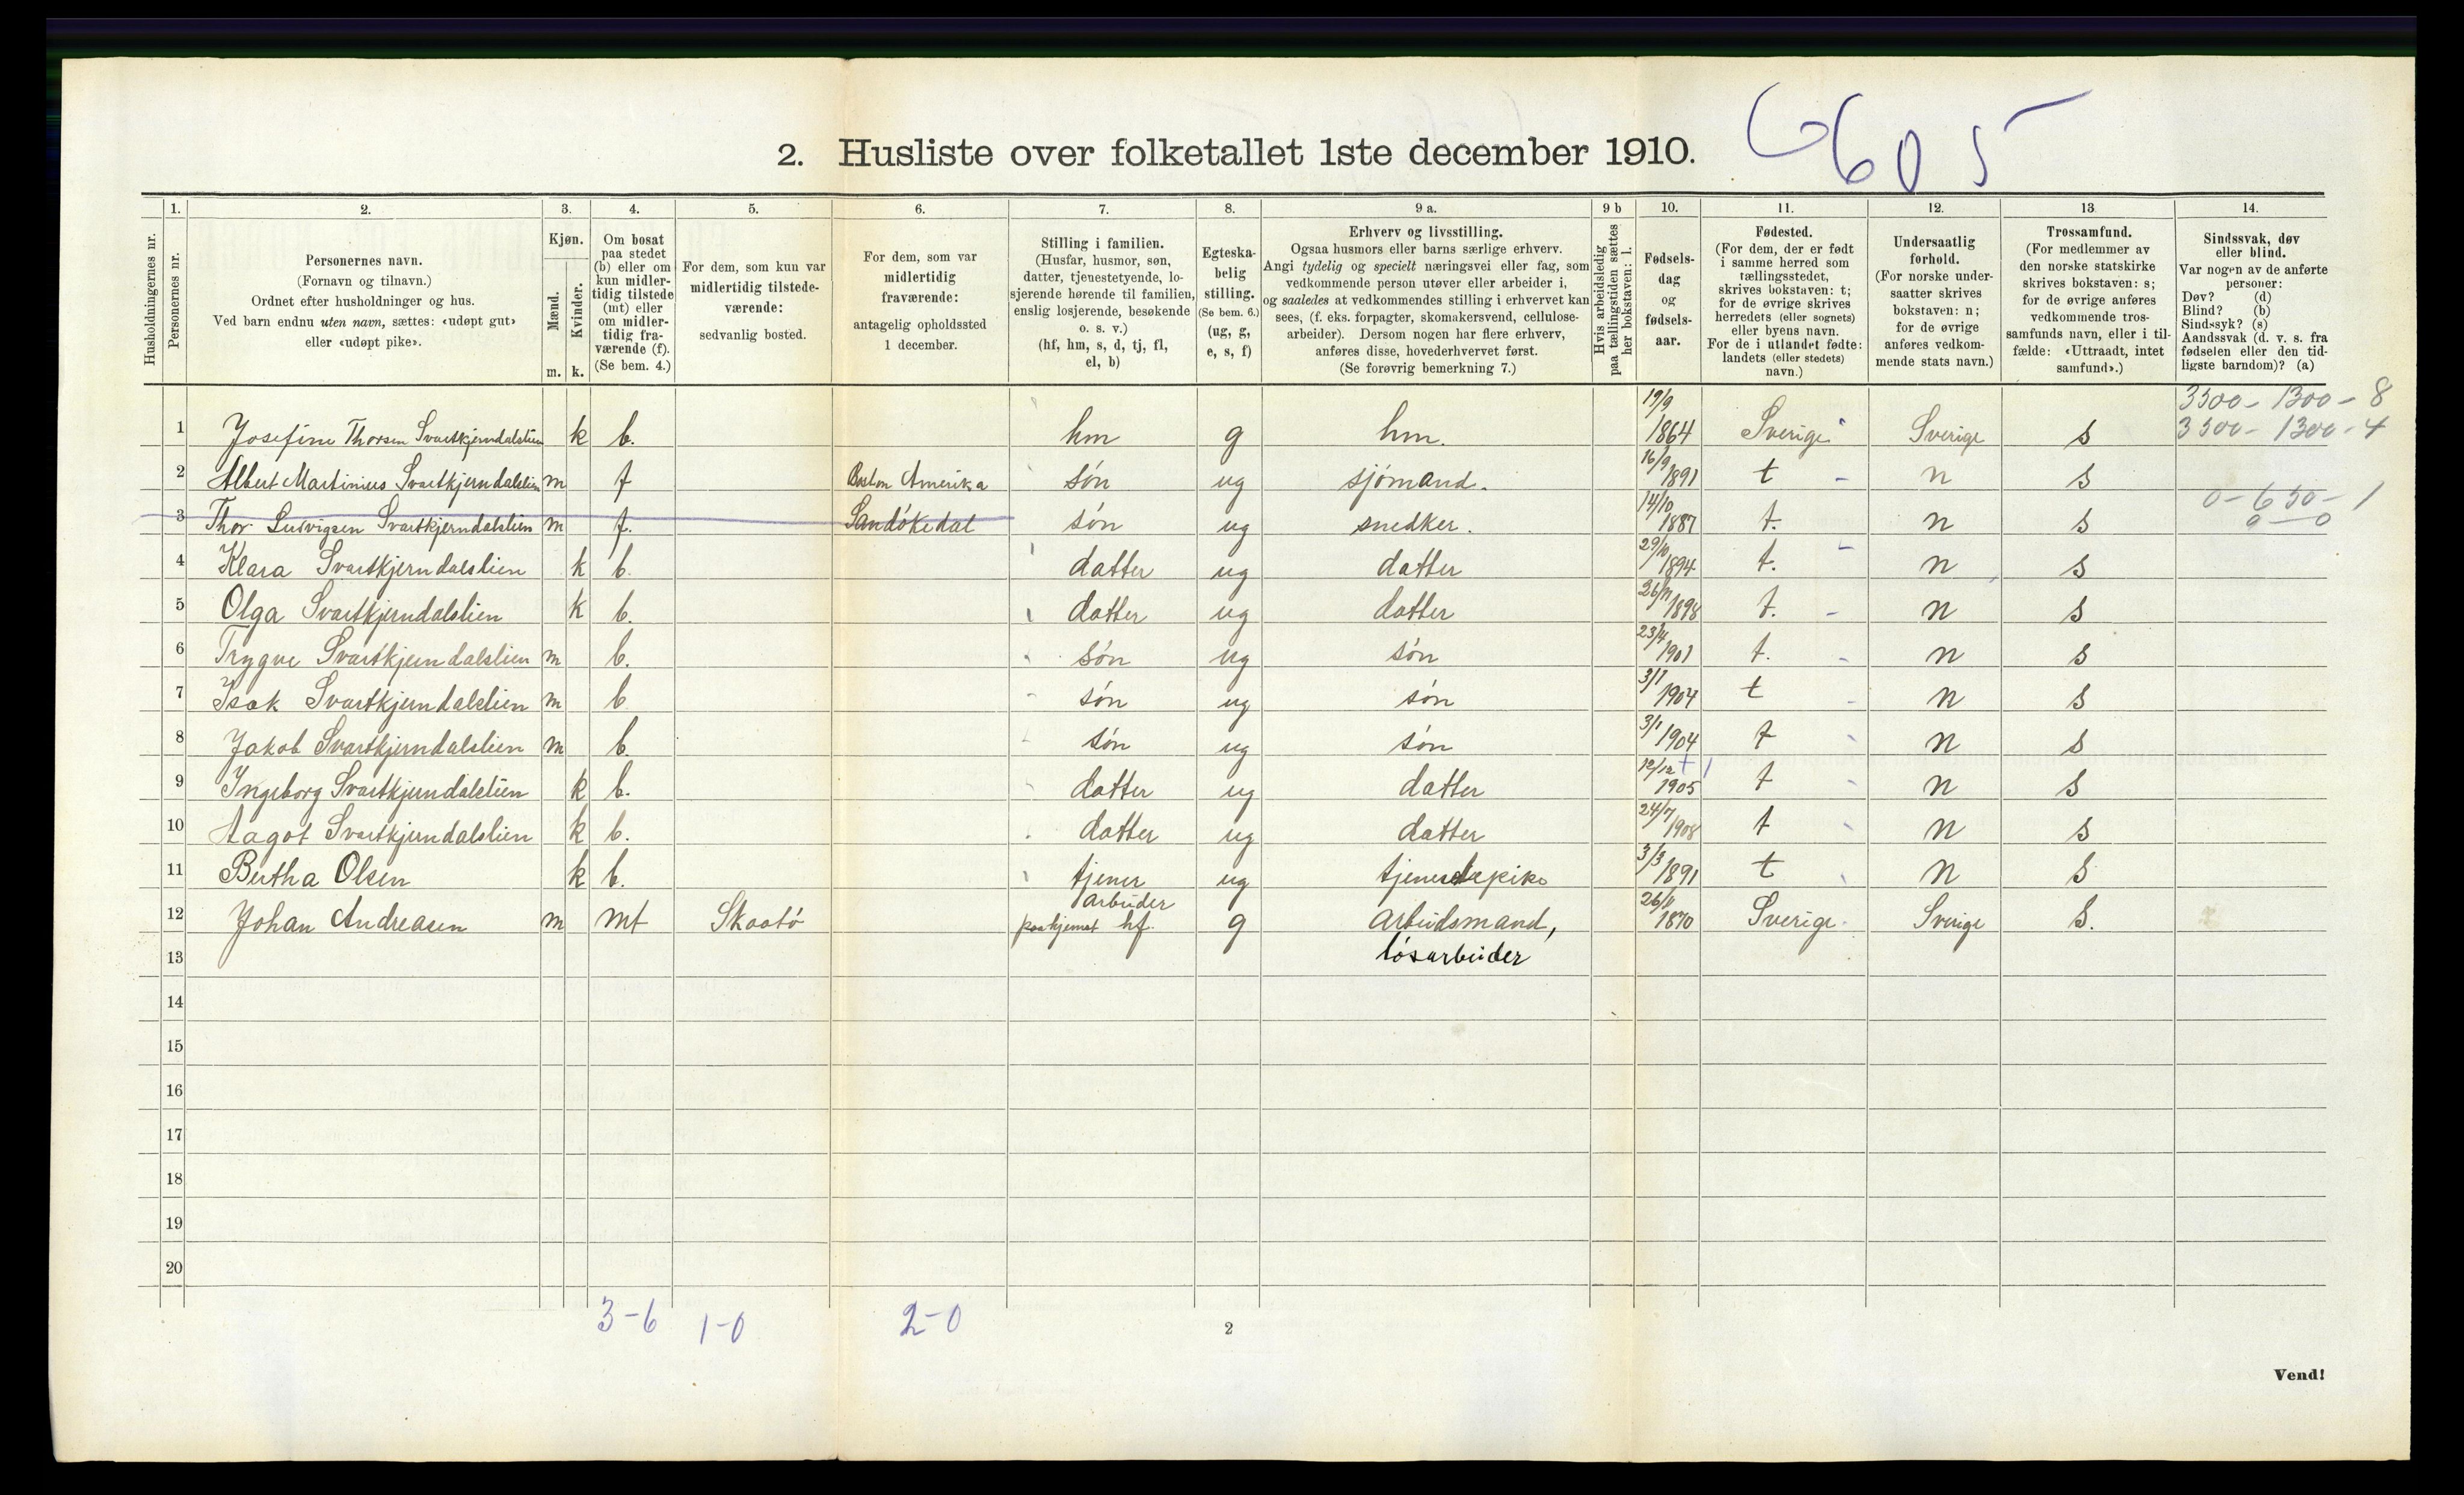 2. Husliste over folketallet 1ste december 1910.
6605
Husholdningernes nr.
1.
Personernes nr.
2.
Personernes navn.
(Fornavn og tilnavn.)
Ordnet efter husholdninger og hus.
Ved barn endnu uten navn, sættes: «udøpt gut»
eller «udøpt pike».
3.
Kjøn.
Mænd.
Kvinder.
m. k.
4.
Om bosat
paa stedet
(b) eller om
kun midler-
tidig tilstede
(mt) eller
om midler-
tidig fra-
værende (f).
(Se bem. 4.)
5.
For dem, som kun var
midlertidig tilstede-
værende:
sedvanlig bosted.
6.
For dem, som var
midlertidig
fraværende:
antagelig opholdssted
1 december.
7.
Stilling i familien.
(Husfar, husmor, søn,
datter, tjenestetyende, lo-
sjerende hørende til familien,
enslig losjerende, besøkende
o. s. v.)
(hf, hm, s, d, tj, fl,
el, b)
8.
Egteska-
belig
stilling.
(Se bem. 6.)
(ug, g,
e, s, f)
9 a.
Erhverv og livsstilling.
Ogsaa husmors eller barns særlige erhverv.
Angi tydelig og specielt næringsvei eller fag, som
vedkommende person utøver eller arbeider i,
og saaledes at vedkommendes stilling i erhvervet kan
sees, (f. eks. forpagter, skomakersvend, cellulose-
arbeider). Dersom nogen har flere erhverv,
anføres disse, hovederhvervet først.
(Se forøvrig bemerkning 7.)
9 b
Hvis arbeidsledig
paa tællingstiden sættes
her bokstaven: l.
10.
Fødsels-
dag
og
fødsels-
aar.
11.
Fødested.
(For dem, der er født
i samme herred som
tællingsstedet,
skrives bokstaven: t;
for de øvrige skrives
herredets (eller sognets)
eller byens navn.
For de i utlandet fødte:
landets (eller stedets)
navn.)
12.
Undersaatlig
forhold.
(For norske under-
saatter skrives
bokstaven: n;
for de øvrige
anføres vedkom-
mende stats navn.)
13.
Trossamfund.
(For medlemmer av
den norske statskirke
skrives bokstaven: s;
for de øvrige anføres
vedkommende tros-
samfunds navn, eller i til-
fælde: «Uttraadt, intet
samfund».)
14.
Sindssvak, døv
eller blind.
Var nogen av de anførte
personer:
Døv? (d)
Blind? (b)
Sindssyk? (s)
Aandssvak (d. v. s. fra
fødselen eller den tid-
ligste barndom)? (a)
3500 - 1300 - 8
3500 - 1300 - 4
1 Josefine Thorsen Svartkjerndalslien k b. hm g hm. 19/9 1864 Sverige Sverige s
2 Albert Martinius Svartkjerndalslien m f Boston Amerika søn ug sjømand. 16/9 1891 t n s
0 - 650 - 1
0 - 0
3 Thor Ludvigsen Svartkjerndalslien m f. Sandøkedal søn ug snedker. 14/10 1887 t. n s
4 Klara Svartkjerndalslien k b. datter ug datter 29/10 1894 t. n s
5 Olga Svartkjerndalslien k b. datter ug datter 26/11 1898 t. n s
6 Trygve Svartkjerndalslien m b. søn ug søn 23/4 1901 t. n s
7 Isak Svartkjerndalslien m b søn ug søn 3/1 1904 t n s
8 Jakob Svartkjerndalslien m b. søn ug søn 3/1 1904 t n s
9 Ingeborg Svartkjerndalslien k b. datter ug datter 12/12 1905 t n s
10 Aagot Svartkjerndalslien k b. datter ug datter 24/7 1908 t n s
11 Bertha Olsen k b. tjener ug tjenestepike 3/3 1891 t n s
arbeider
12 Johan Andreasen m mt Skaatø hf. g arbeidsmand, 1870 Sverige Sverige s.
13 løsarbeider
14
15
16
17
18
19
20
3-6 1-0 2-0
2
Vend!